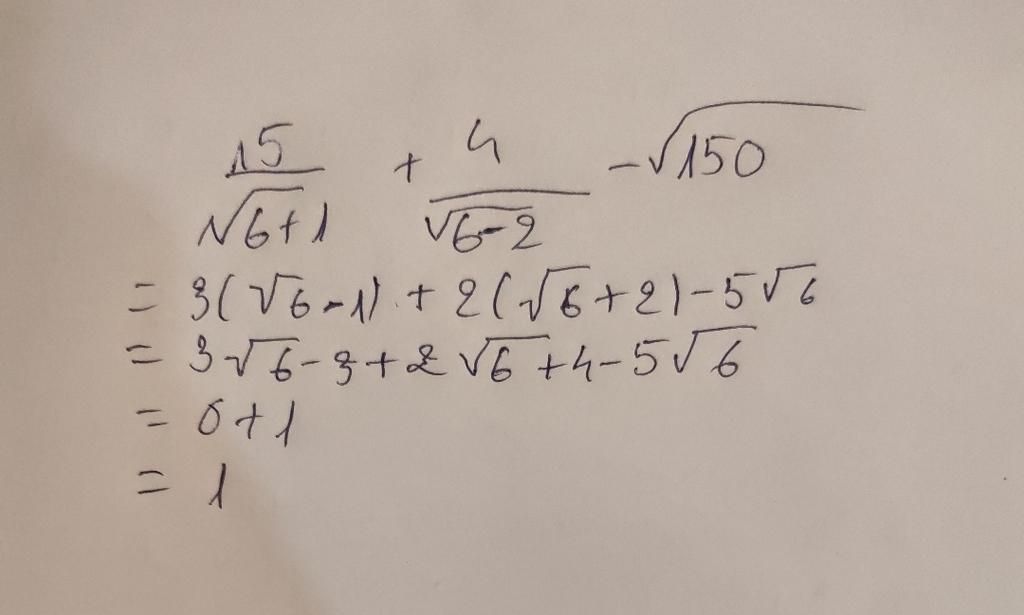 15/(√6+1) + 4/(√6-2) - √150
= 3(√6-1) + 2(√6+2)-5√6
= 3√6-3+2√6+4-5√6
= 0+1
= 1